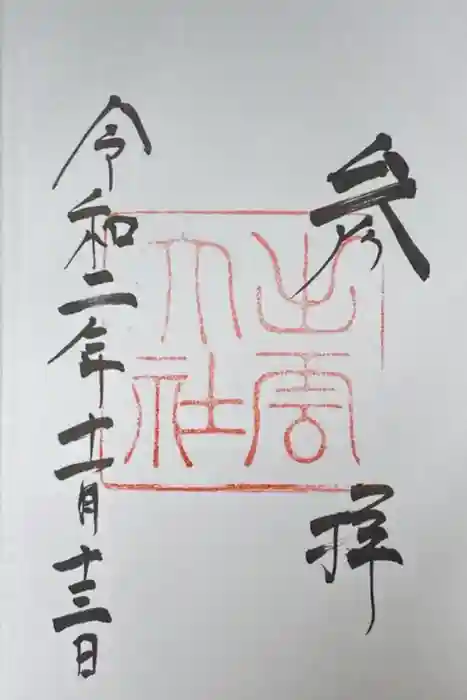 参拝
出雲
大社
令和二年十一月十三日